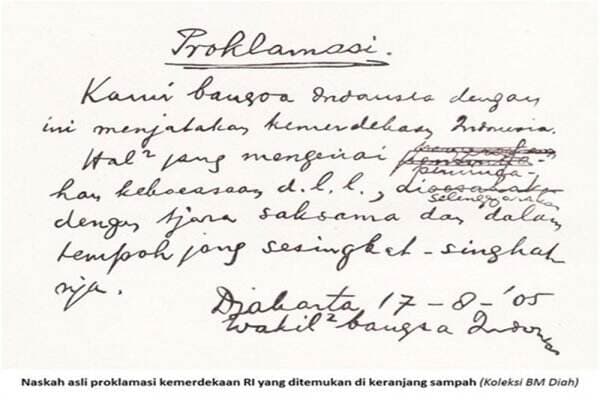 Proklamasi.
Kami bangsa Indonesia dengan
ini menjatakan kemerdekaan Indonesia.
Hal² jang mengenai
peminda-
han kekoeasaan d.l.l., dioesahakan
selenggarakan
dengan tjara saksama dan dalam
tempoh jang sesingkat-singkat
nja.
Djakarta 17 - 8 - '05
Wakil² bangsa Indonesia
Naskah asli proklamasi kemerdekaan RI yang ditemukan di keranjang sampah (Koleksi BM Diah)